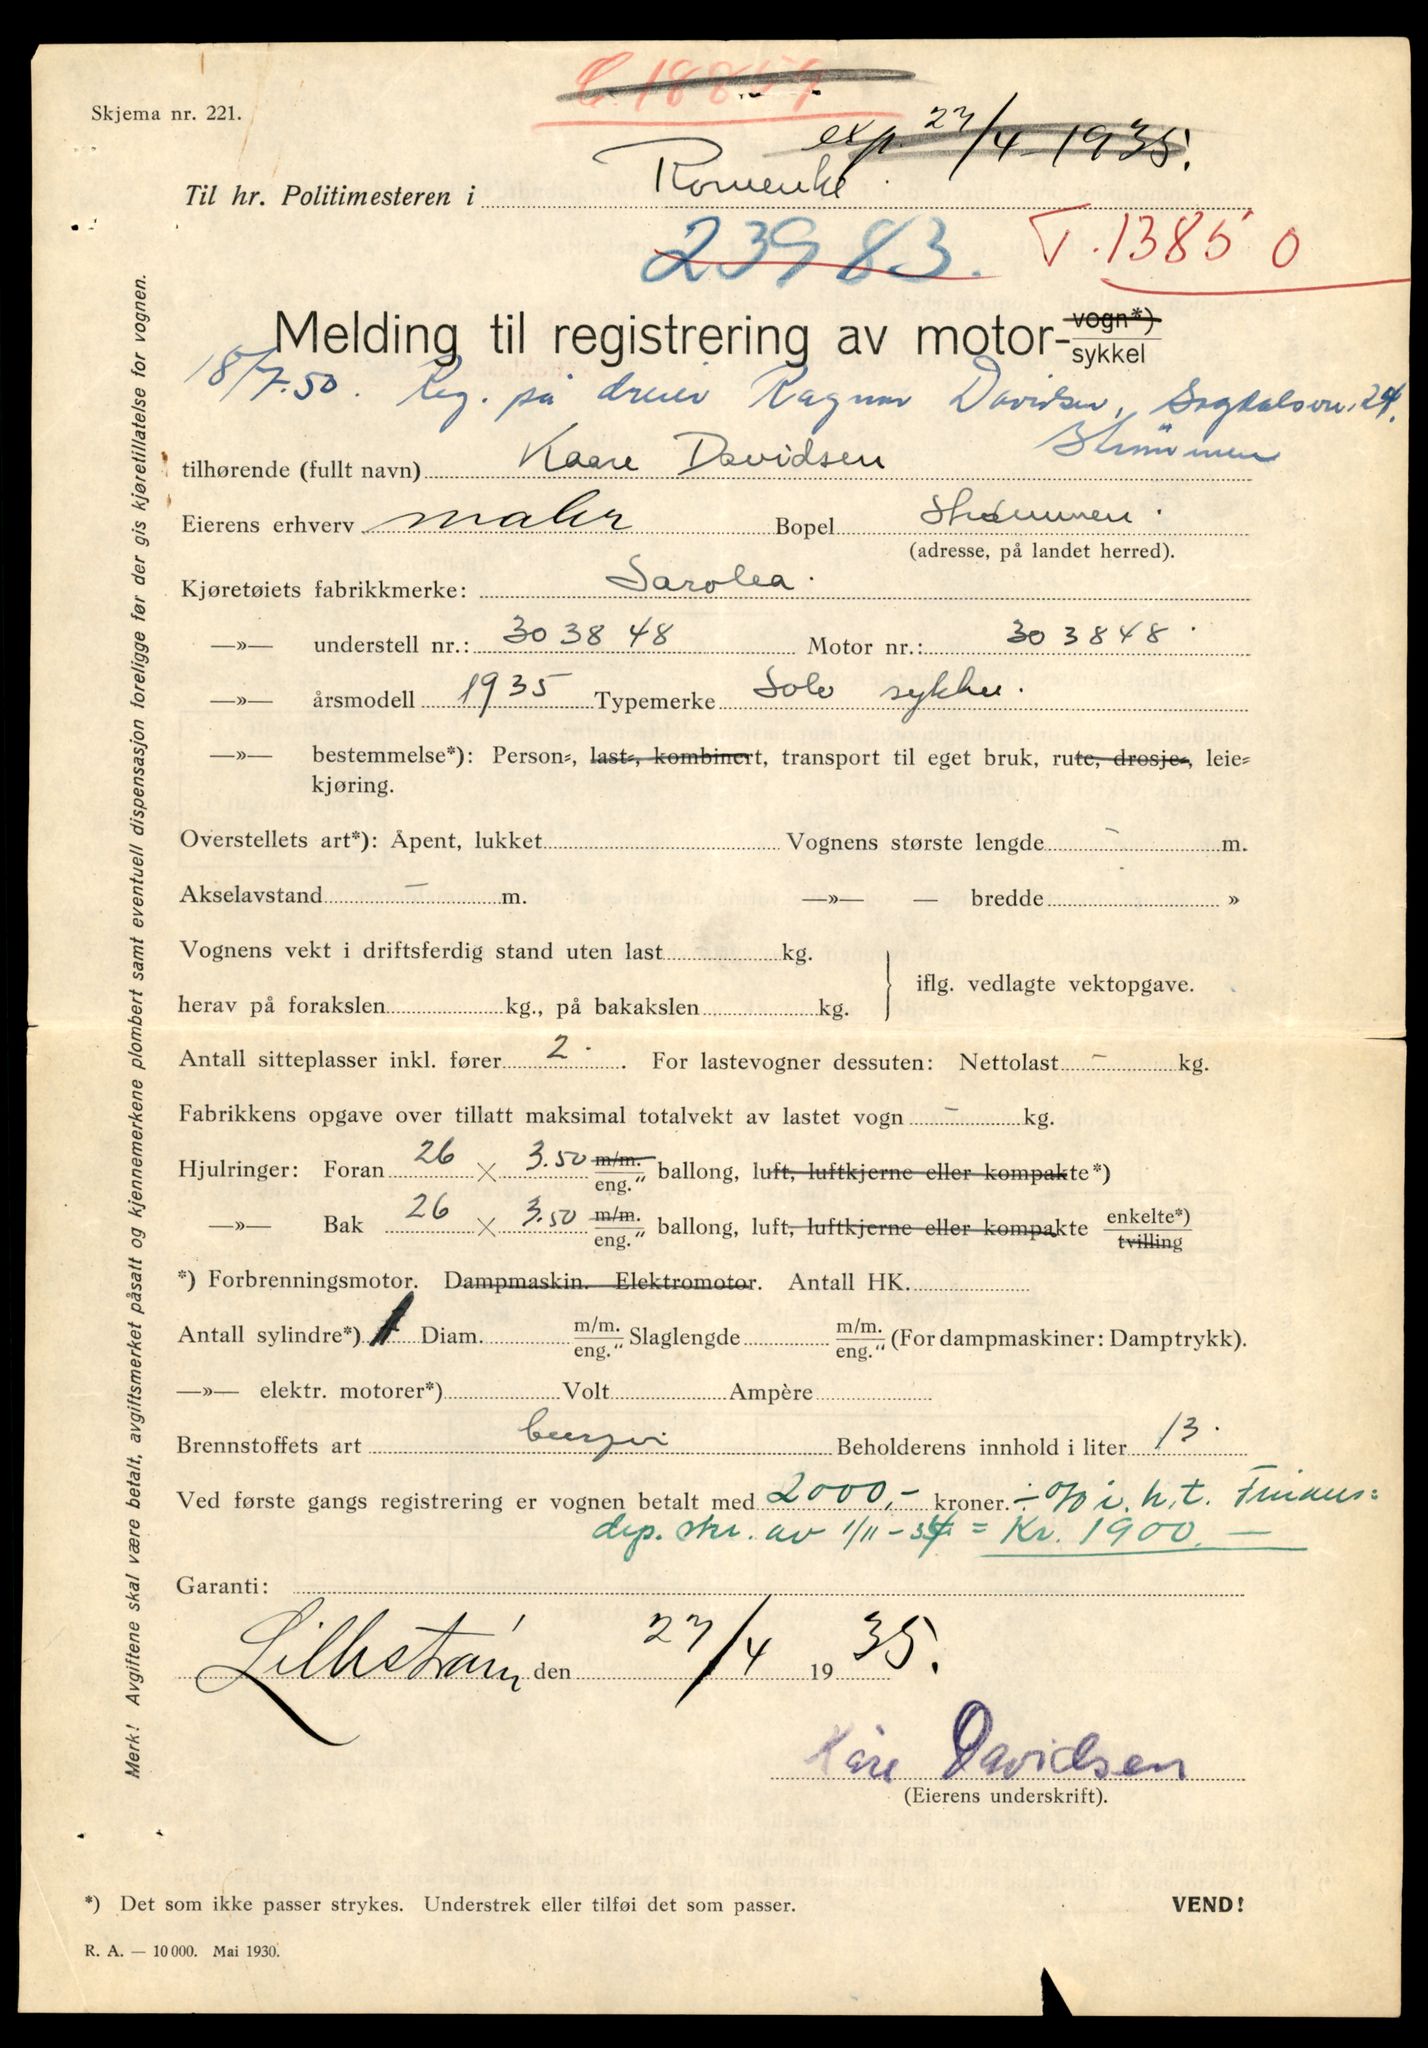 C. 18857
Skjema nr. 221.
exp. 27/4 1935.
Til hr. Politimesteren i Romerike.
23983. T. 13850
Melding til registrering av motor- vogn*) sykkel
18/7.50. Reg. på dreier Ragnar Davidsen, Sagdalsvn. 24.
Strømmen
tilhørende (fullt navn) Kaare Davidsen
Eierens erhverv maler Bopel Strømmen.
(adresse, på landet herred).
Kjøretøiets fabrikkmerke: Sarolea.
—»— understell nr.: 303848 Motor nr.: 303848.
—»— årsmodell 1935 Typemerke Solo sykkel.
—»— bestemmelse*): Person-, last-, kombinert, transport til eget bruk, rute, drosje-, leie-
kjøring.
Overstellets art*): Åpent, lukket Vognens største lengde – m.
Akselavstand – m. —»— — bredde »
Vognens vekt i driftsferdig stand uten last kg.
iflg. vedlagte vektopgave.
herav på forakslen kg., på bakakslen kg.
Antall sitteplasser inkl. fører 2. For lastevogner dessuten: Nettolast – kg.
Fabrikkens opgave over tillatt maksimal totalvekt av lastet vogn – kg.
Hjulringer: Foran 26 × 3.50 m/m. eng." ballong, luft, luftkjerne eller kompakte*)
—»— Bak 26 × 3.50 m/m. eng." ballong, luft, luftkjerne eller kompakte enkelte*) tvilling
*) Forbrenningsmotor. Dampmaskin. Elektromotor. Antall HK.
Antall sylindre*) 1 Diam. m/m. eng." Slaglengde m/m. eng." (For dampmaskiner: Damptrykk).
—»— elektr. motorer*) Volt Ampère
Brennstoffets art Beholderens innhold i liter 13.
Ved første gangs registrering er vognen betalt med 2000,- kroner. ÷ % i. h. t. Finans-
dep. skr. av 1/11-34 = Kr. 1900.—
Garanti:
Lillestrøm den 27/4 1935.
Kåre Davidsen
(Eierens underskrift).
*) Det som ikke passer strykes. Understrek eller tilføi det som passer. VEND!
R. A. — 10 000. Mai 1930.
Merk! Avgiftene skal være betalt, avgiftsmerket påsatt og kjennemerkene plombert samt eventuell dispensasjon foreligge før der gis kjøretillatelse for vognen.